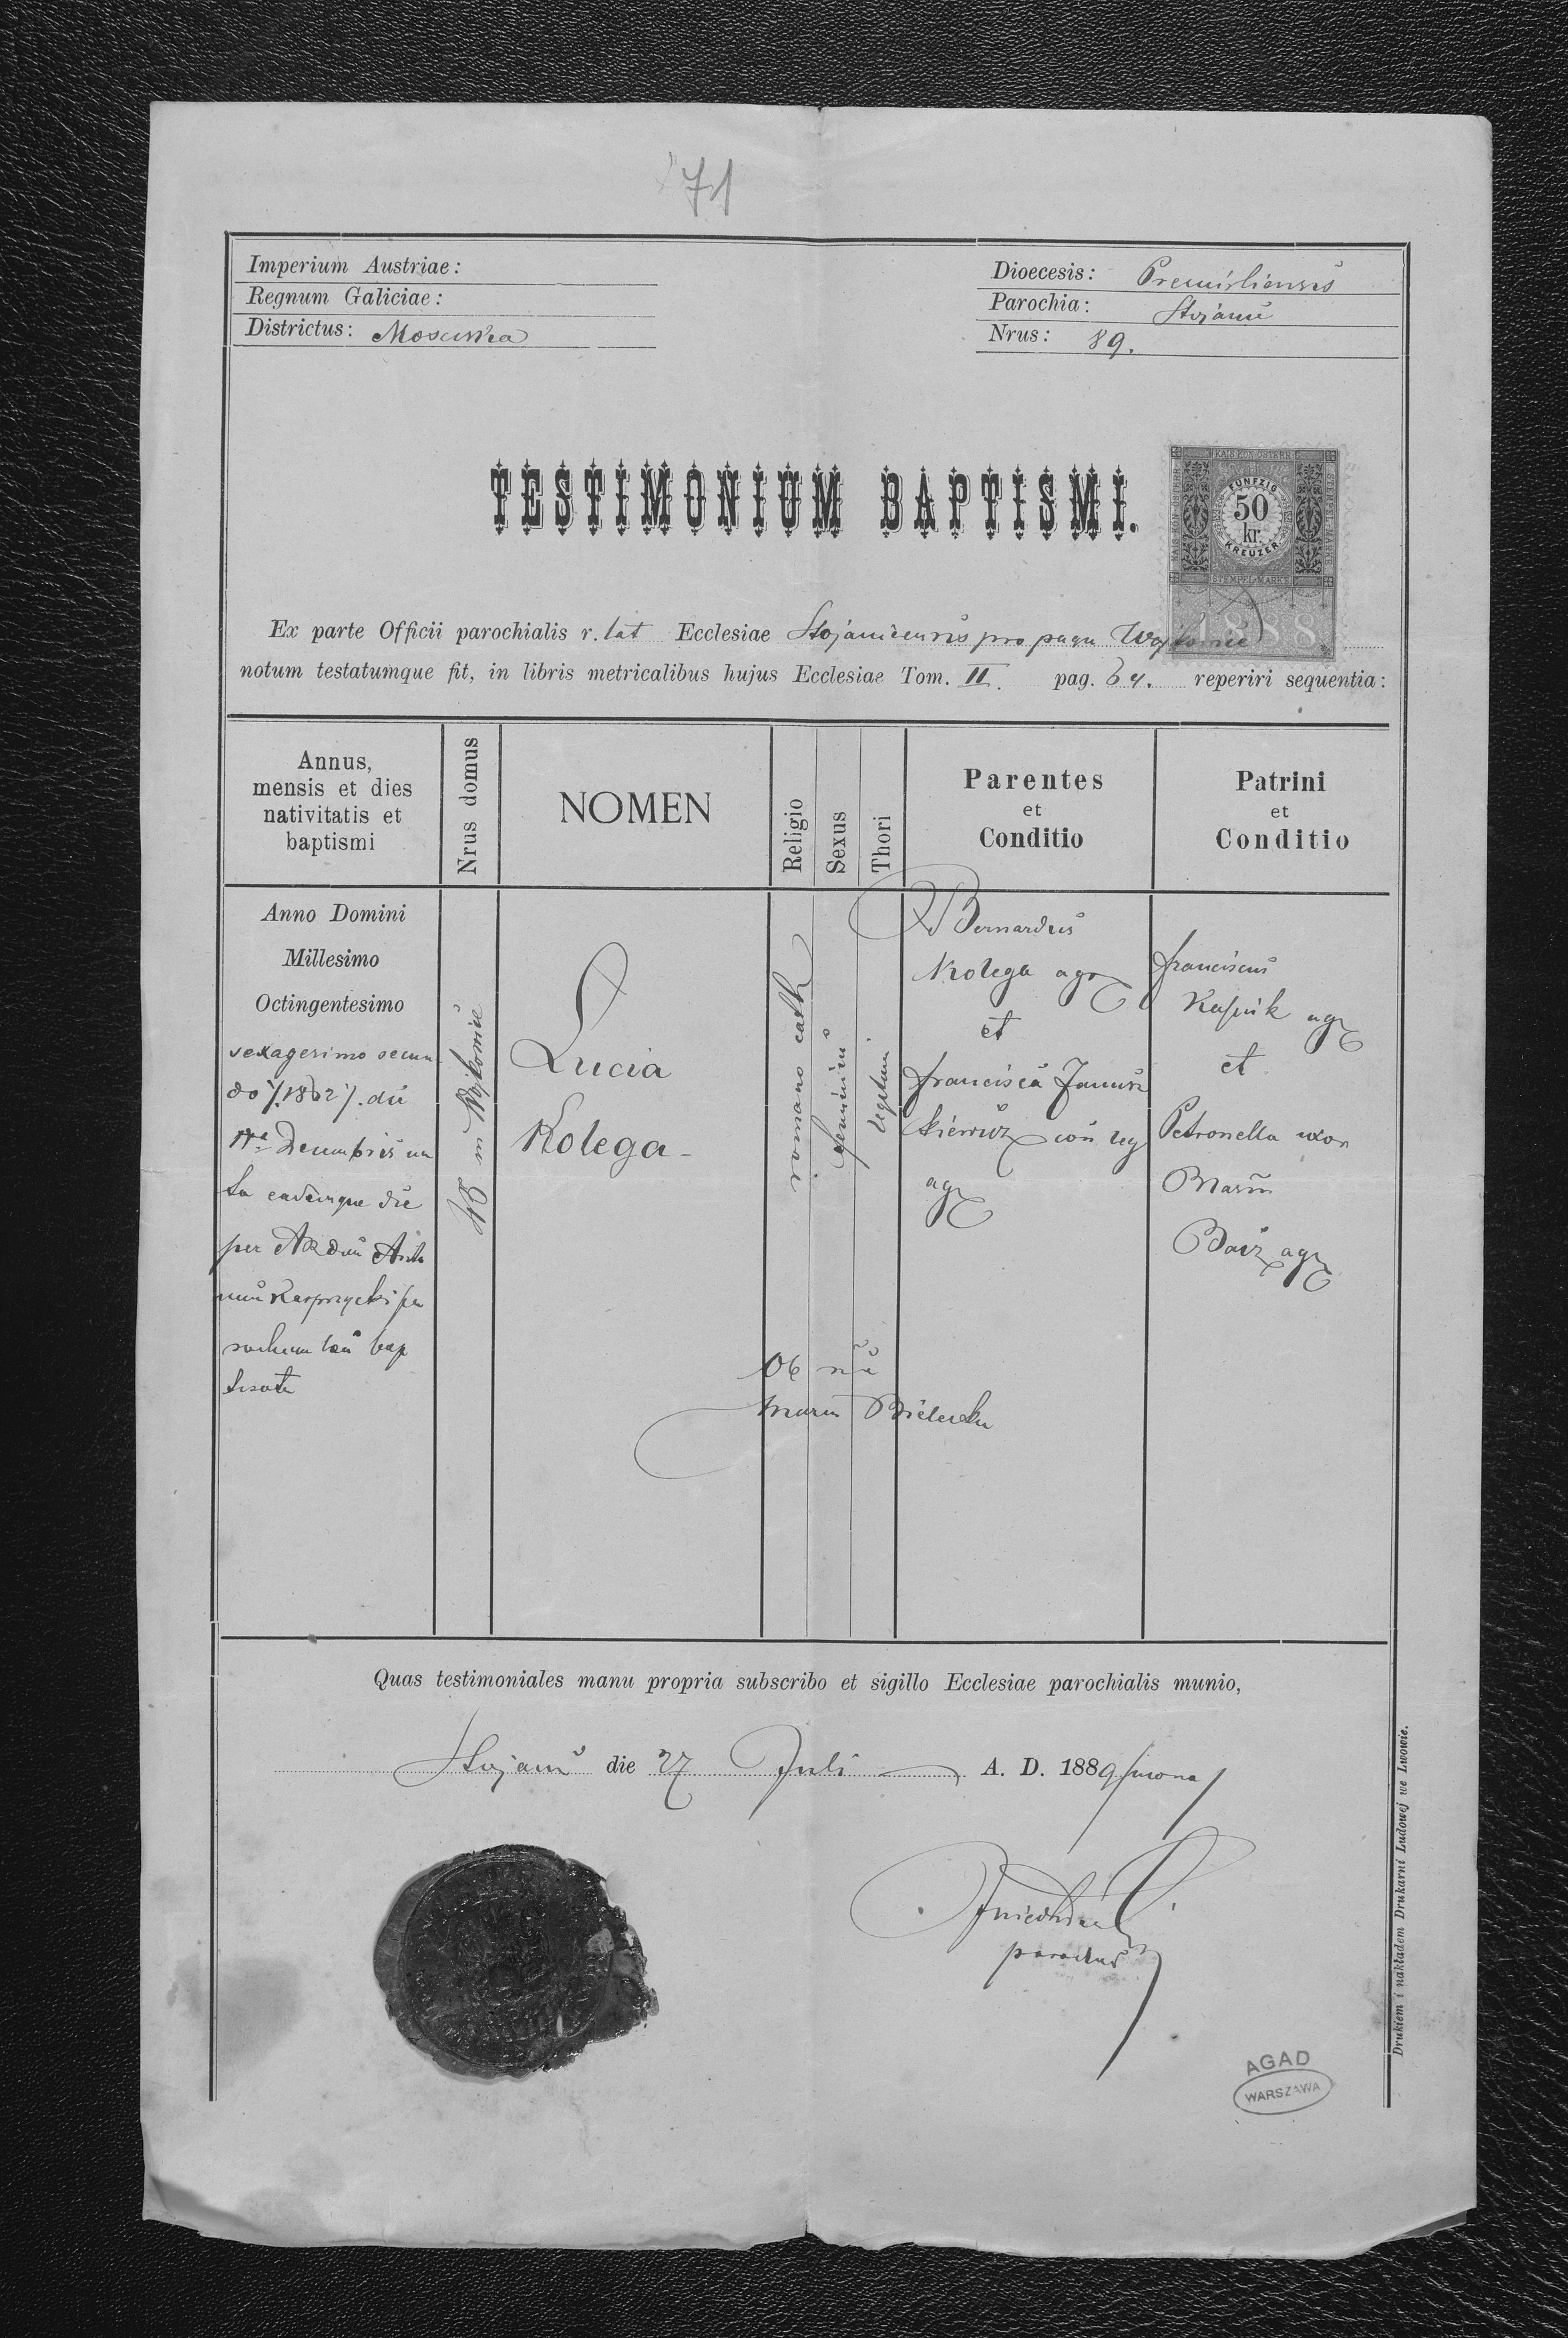 71
Imperium Austriae:
Regnum Galiciae:
Districtus: Mosciska
Dioecesis: Premisliensis
Parochia: Stojanie
Nrus: 89.
TESTIMONIUM BAPTISMI.
KAIS. KÖN. OESTERR.
FÜNFZIG
50
kr.
KREUZER
STEMPEL-MARKE
1888
Ex parte Officii parochialis r. lat Ecclesiae Stojanicensis pro pagu Wojkowice
notum testatumque fit, in libris metricalibus hujus Ecclesiae Tom. II. pag. 64. reperiri sequentia:
Annus,
mensis et dies
nativitatis et
baptismi
Nrus domus
NOMEN
Religio
Sexus
Thori
Parentes
et
Conditio
Patrini
et
Conditio
Anno Domini
Millesimo
Octingentesimo
sexagesimo secun
do /.1862/. die
Decembris na
ta eademque die
per
Kasprzycki pa
rochum bap
tisata
in Wojkowice
Lucia
Kolega
romano cath
feminini
legitimi
Bernardus
Kolega agr
et
Francisca Janusz
kiewicz leg
agr
Franciscus
Kaspik agr
et
Petronella uxor
Marin
agr
Ob
Bielecka
Quas testimoniales manu propria subscribo et sigillo Ecclesiae parochialis munio,
Stojanie die 27 Juli A. D. 1889/nono/
parochus
AGAD
WARSZAWA
Drukiem i nakładem Drukarni Ludowej we Lwowie.